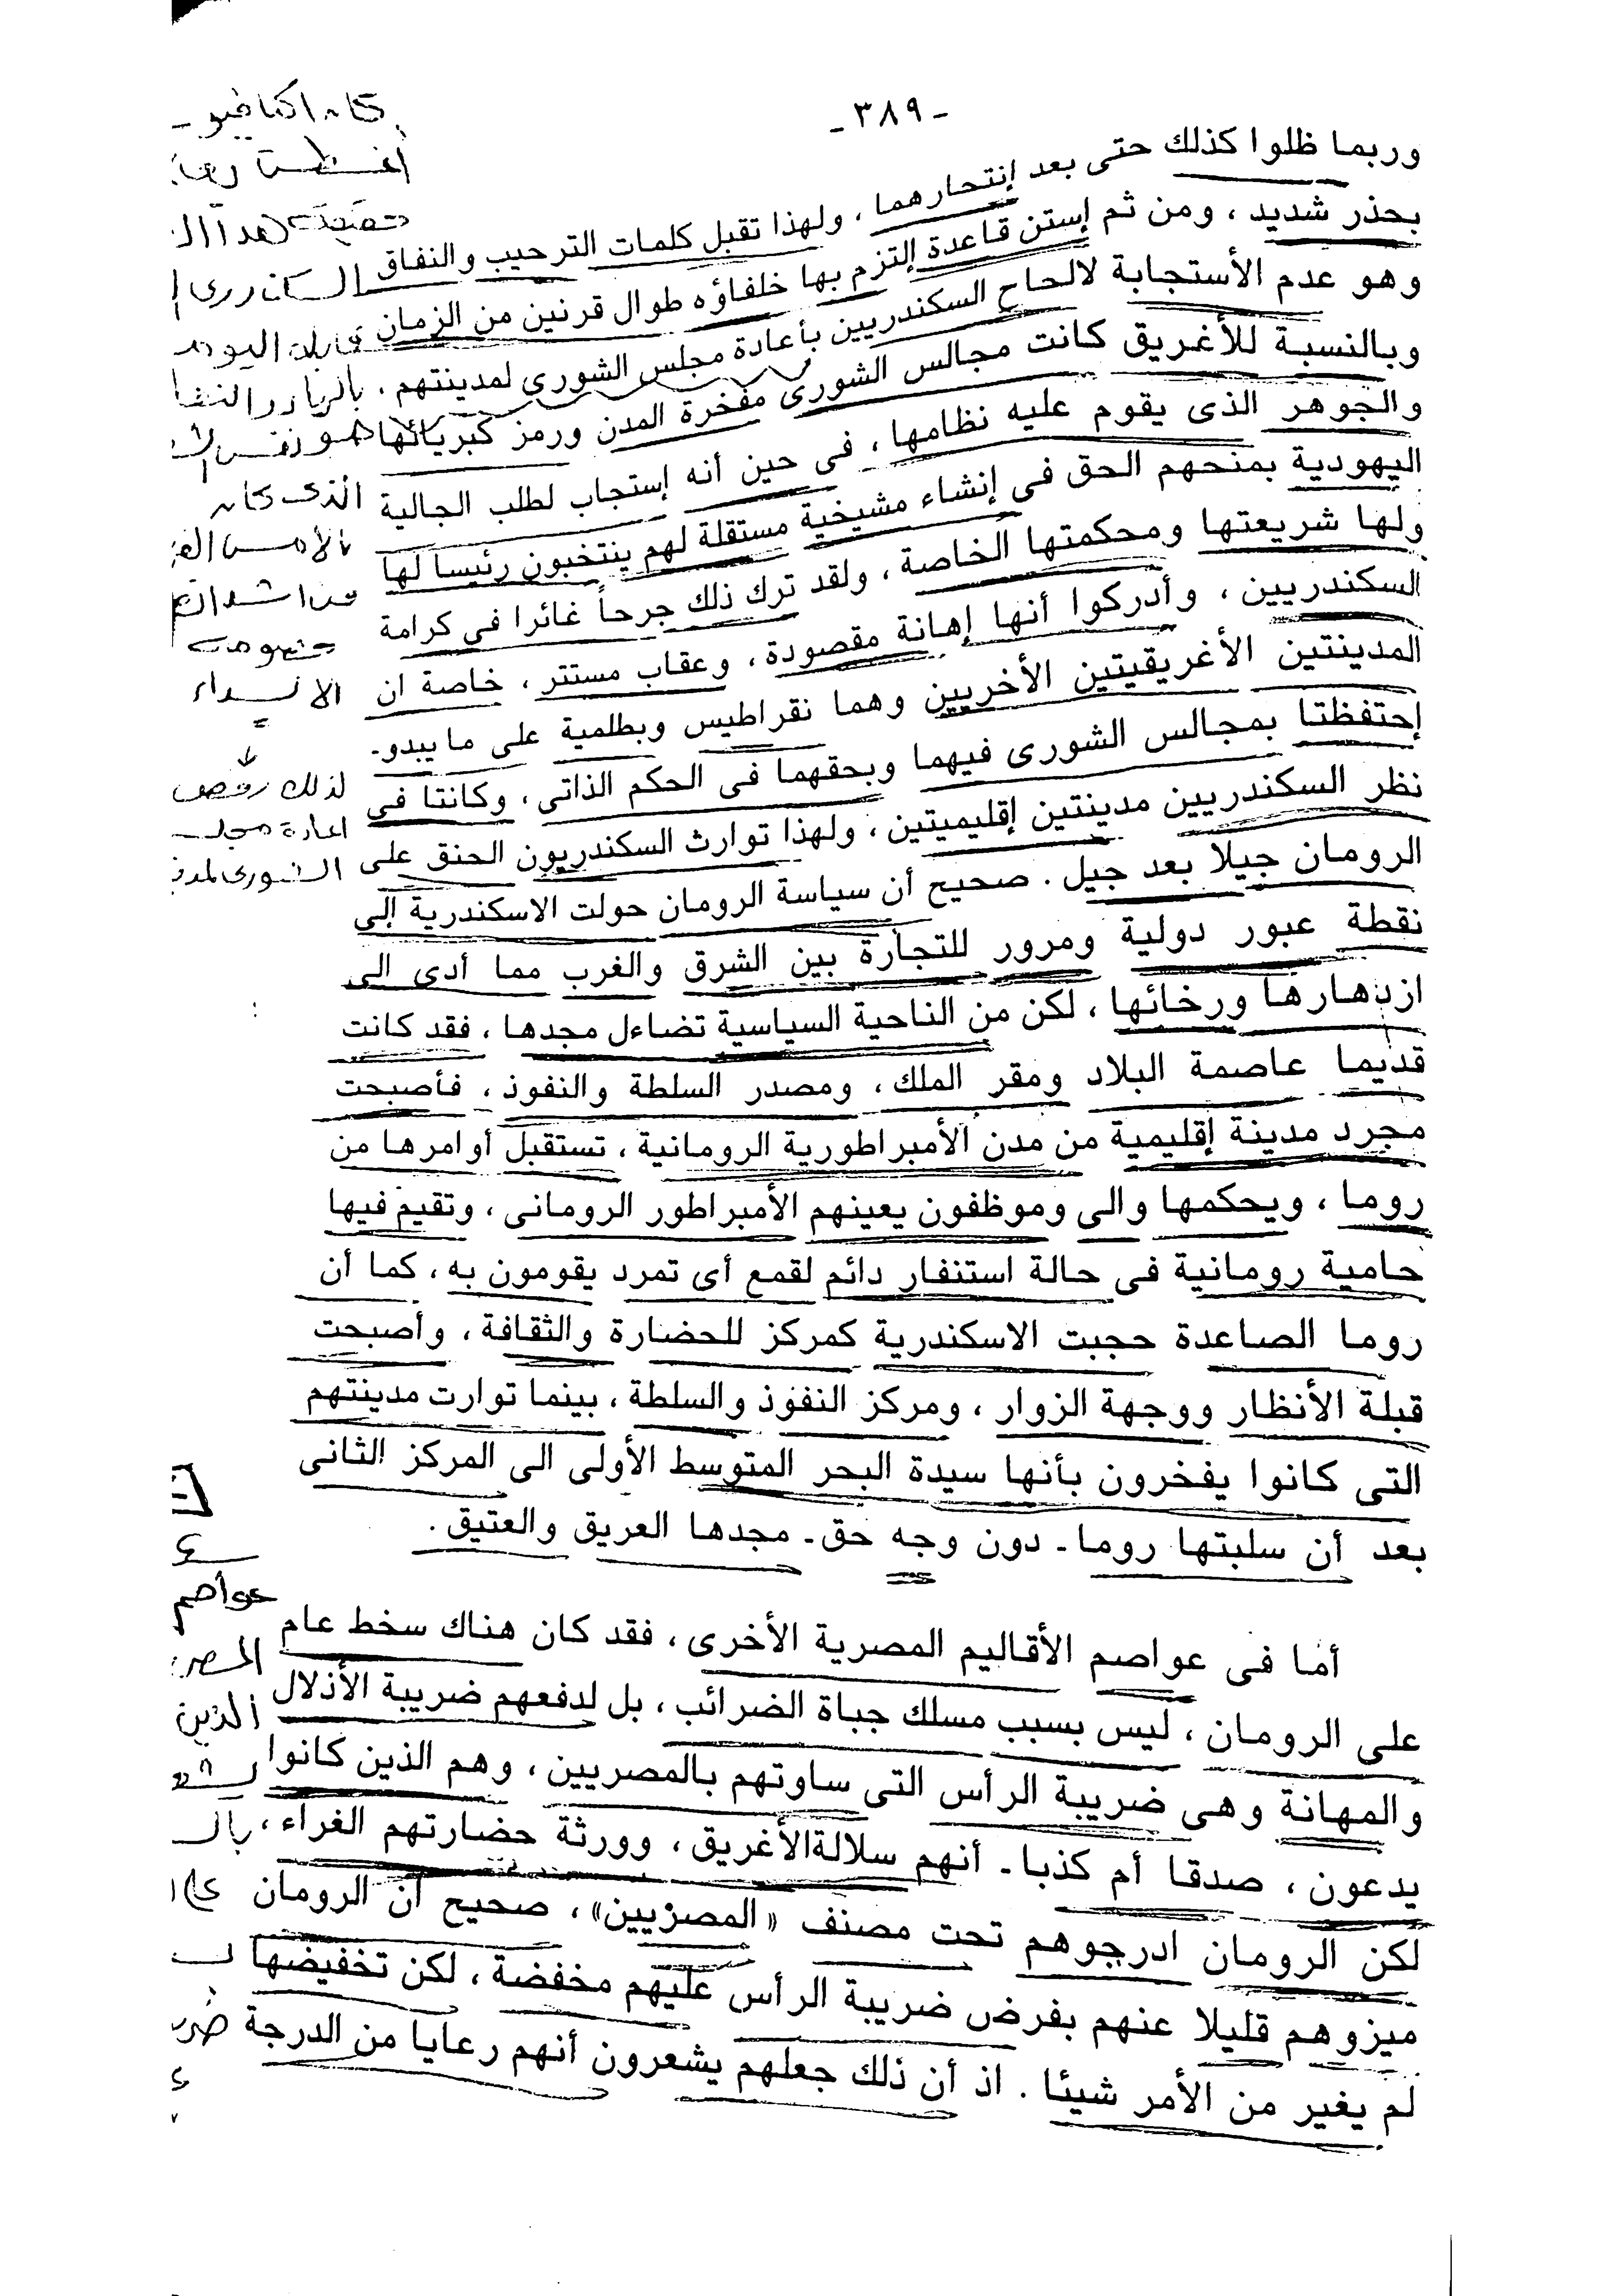 - ٣٨٩ -
وربما ظلوا كذلك حتى بعد إنتحارهما ، ولهذا تقبل كلمات الترحيب والنفاق
بحذر شديد ، ومن ثم إستن قاعدة إلتزم بها خلفاؤه طوال قرنين من الزمان
وهو عدم الأستجابة لالحاح السكندريين بأعادة مجلس الشورى لمدينتهم .
وبالنسبة للأغريق كانت مجالس الشورى مفخرة المدن ورمز كبريائها
والجوهر الذى يقوم عليه نظامها ، فى حين أنه إستجاب لطلب الجالية
اليهودية بمنحهم الحق فى إنشاء مشيخية مستقلة لهم ينتخبون رئيسا لها
ولها شريعتها ومحكمتها الخاصة ، ولقد ترك ذلك جرحاً غائرا فى كرامة
السكندريين ، وأدركوا أنها إهانة مقصودة ، وعقاب مستتر ، خاصة ان
المدينتين الأغريقيتين الأخريين وهما نقراطيس وبطلمية على ما يبدو -
إحتفظتا بمجالس الشورى فيهما وبحقهما فى الحكم الذاتى ، وكانتا فى
نظر السكندريين مدينتين إقليميتين ، ولهذا توارث السكندريون الحنق على
الرومان جيلا بعد جيل . صحيح أن سياسة الرومان حولت الاسكندرية إلى
نقطة عبور دولية ومرور للتجارة بين الشرق والغرب مما أدى الى
ازدهارها ورخائها ، لكن من الناحية السياسية تضاءل مجدها ، فقد كانت
قديما عاصمة البلاد ومقر الملك ، ومصدر السلطة والنفوذ ، فأصبحت
مجرد مدينة إقليمية من مدن الأمبراطورية الرومانية ، تستقبل أوامرها من
روما ، ويحكمها والى وموظفون يعينهم الأمبراطور الرومانى ، وتقيم فيها
حامية رومانية فى حالة استنفار دائم لقمع أى تمرد يقومون به ، كما أن
روما الصاعدة حجبت الاسكندرية كمركز للحضارة والثقافة ، وأصبحت
قبلة الأنظار ووجهة الزوار ، ومركز النفوذ والسلطة ، بينما توارت مدينتهم
التى كانوا يفخرون بأنها سيدة البحر المتوسط الأولى الى المركز الثانى
بعد أن سلبتها روما - دون وجه حق - مجدها العريق والعتيق .
أما فى عواصم الأقاليم المصرية الأخرى ، فقد كان هناك سخط عام
على الرومان ، ليس بسبب مسلك جباة الضرائب ، بل لدفعهم ضريبة الأذلال
والمهانة وهى ضريبة الرأس التى ساوتهم بالمصريين ، وهم الذين كانوا
يدعون ، صدقا أم كذبا - أنهم سلالة الأغريق ، وورثة حضارتهم الغراء ،
لكن الرومان ادرجوهم تحت مصنف «المصريين» ، صحيح أن الرومان
ميزوهم قليلا عنهم بفرض ضريبة الرأس عليهم مخفضة ، لكن تخفيضها
لم يغير من الأمر شيئا . اذ أن ذلك جعلهم يشعرون أنهم رعايا من الدرجة
الذى كان
الأنداء
لذلك رفض
اعادة مجلس
عواصم
الذين